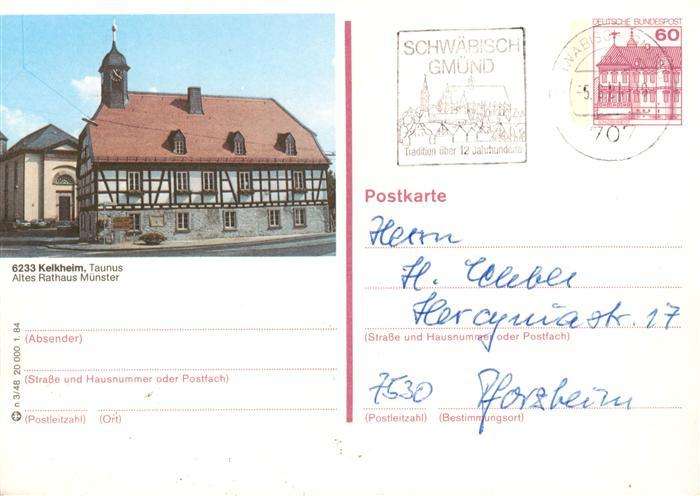 SCHWÄBISCH
GMÜND
Tradition über 12 Jahrhunderte
DEUTSCHE BUNDESPOST
60
707
6233 Kelkheim, Taunus
Altes Rathaus Münster
n 3/48 20 000 1. 84
(Absender)
(Straße und Hausnummer oder Postfach)
(Postleitzahl) (Ort)
Postkarte
Herrn
H.
Hercyniastr. 17
(Straße und Hausnummer oder Postfach)
7530 Pforzheim
(Postleitzahl) (Bestimmungsort)